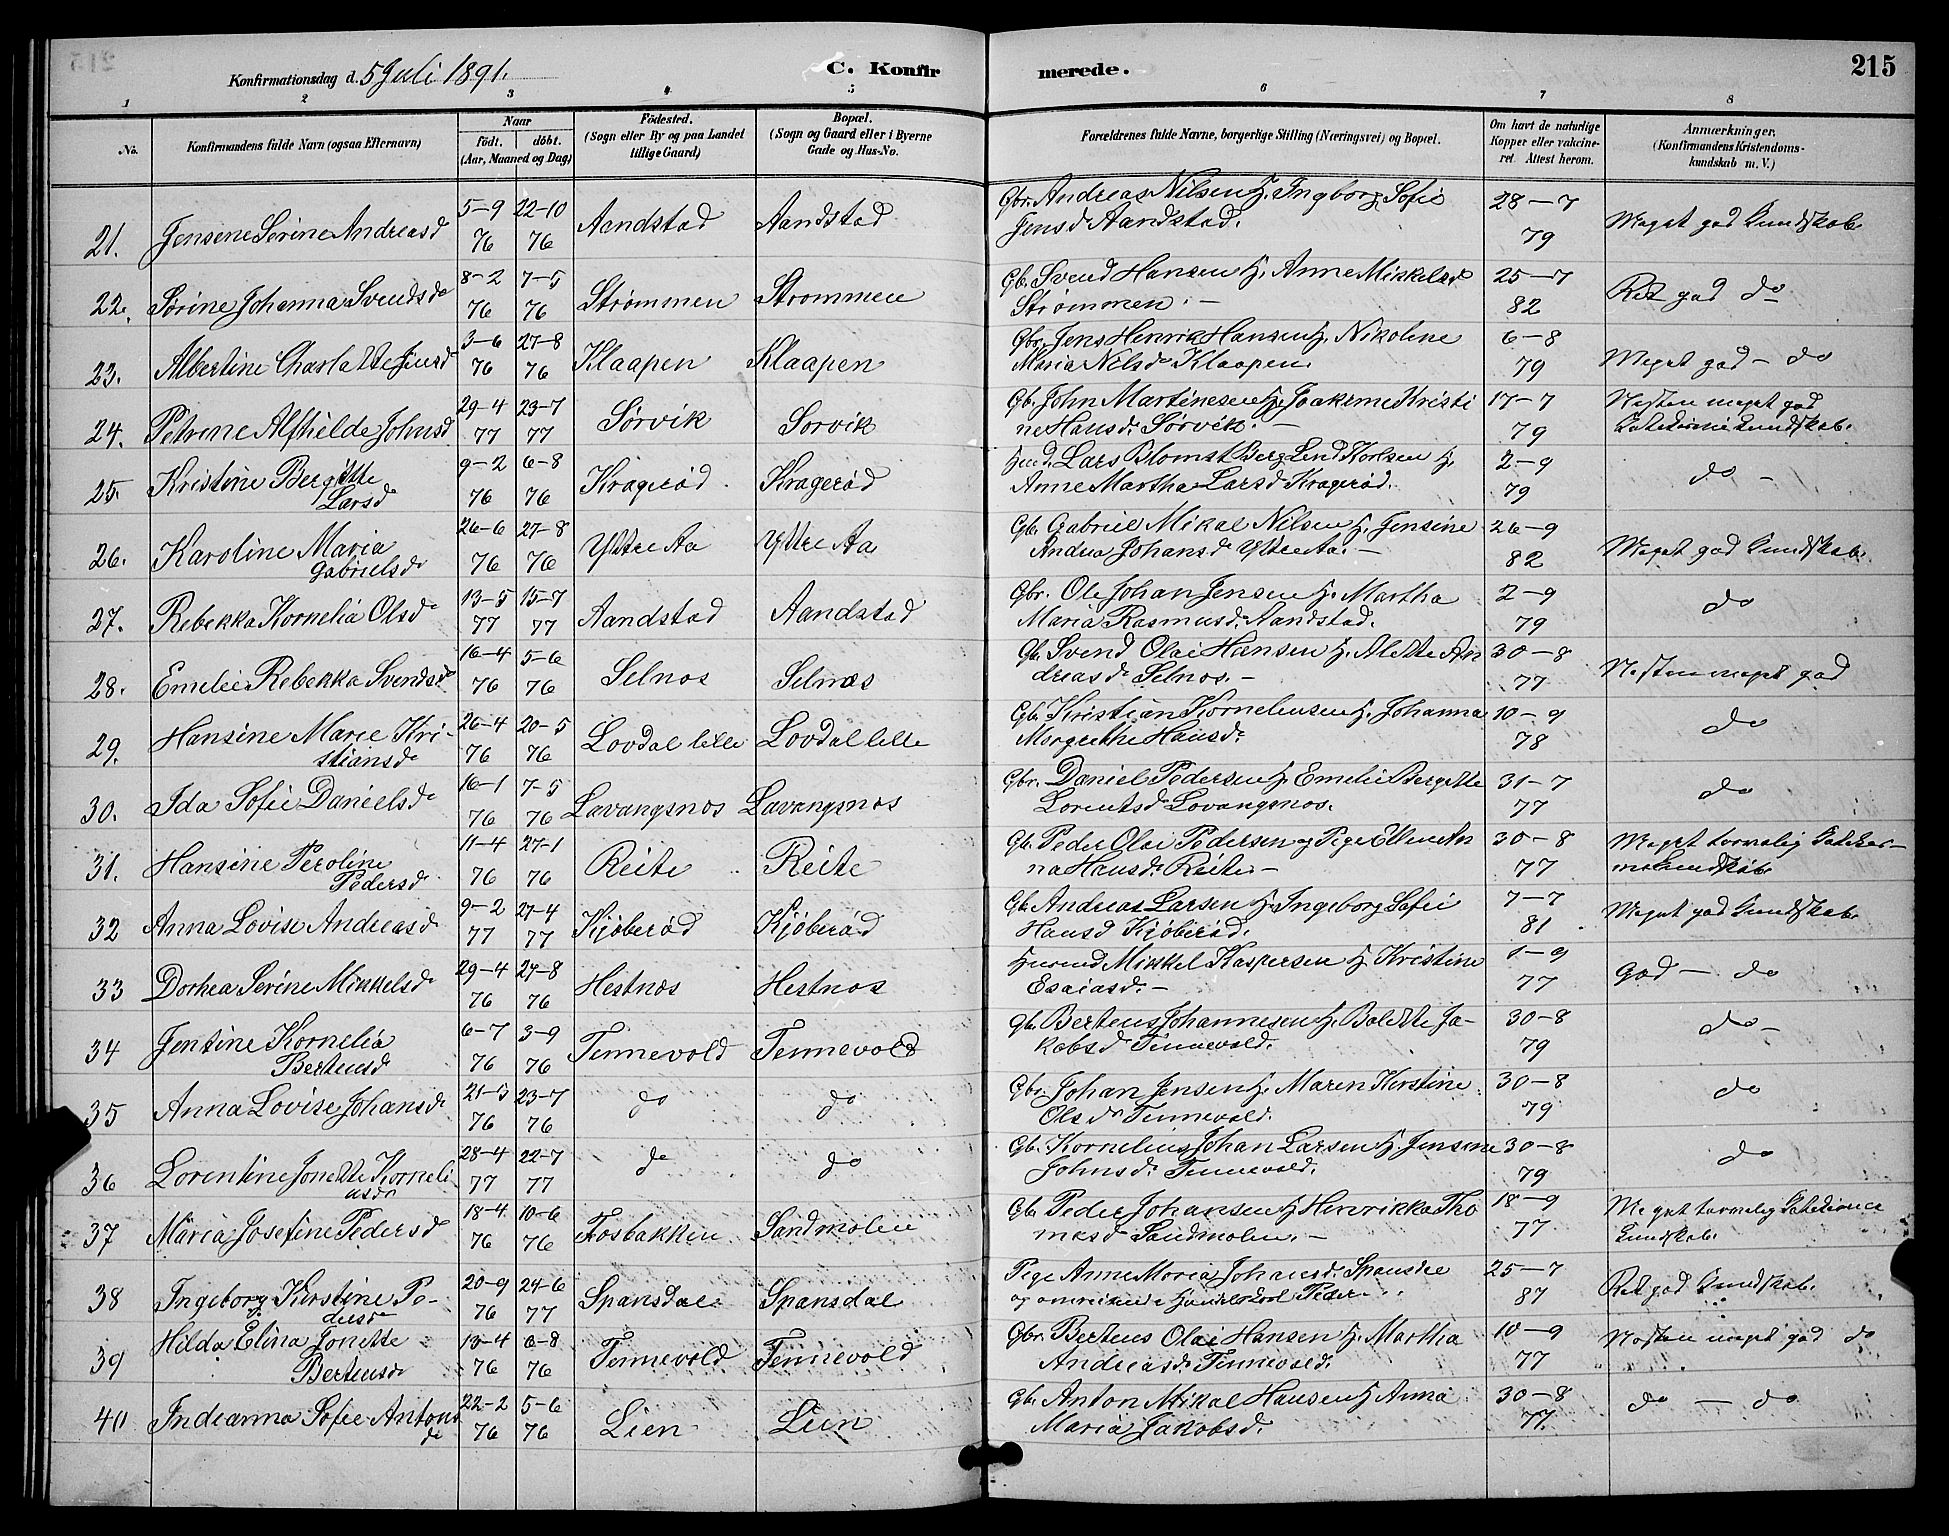 Konfirmationsdag d. 5 Juli 1891.
C. Konfirmerede.
215
1 2 3 4 5 6 7 8
No. Konfirmandens fulde Navn (ogsaa Efternavn) Naar födt. döbt. (Aar, Maaned og Dag) Födested. (Sogn eller By og paa Landet tillige Gaard) Bopæl. (Sogn og Gaard eller i Byerne Gade og Hus-No. Forældrenes fulde Navne, borgerlige Stilling (Næringsvei) og Bopæl. Om havt de naturlige Kopper eller vakcineret. Attest herom. Anmærkninger. (Konfirmandens Kristendomskundskab m. V.)
21. Jensene Serine Andreasd 5-9 76 22-10 76 Aandstad Aandstad Gbr. Andreas Nilsen H. Ingborg Sofie
Jensd Aandstad. 28-7 79 Meget god Kundskab.
22. Sørine Johanna Svendsdr 8-2 76 7-5 76 Strømmen Strømmen Gb. Svend Hansen H. Anne Mikkelsd
Strømmen. - 25-7 82 Ret god do
23. Albertine Charlotte Jensd 3-6 76 27-8 76 Klaapen Klaapen Gbr. Jens Henrik Hansen H. Nikoline
Maria Nilsdr Klaapen. 6-8 79 Meget god - do
24. Petrine Alfhilde Johnsd 29-4 77 23-7 77 Sørvik Sørvik Gb. John Martinesen H. Joakime Kristi
ne Hansdr Sørvik. - 17-7 79 Næsten meget god
Kundskab.
25. Kristine Bergitte
Larsd 9-2 76 6-8 76 Kragerød Kragerød Lars Blomst Berg Lind Korlsen H.
Anne Martha Larsd Kragerød. 2-9 79 do -
26. Karoline Maria
Gabrielsdr 26-6 76 27-8 76 Yttre Aa Yttre Aa Gb. Gabriel Mikal Nilsen H. Jensine
Andrea Johansdr Yttre Aa. - 26-9 82 Meget god Kundskab.
27. Rebekka Kornelia Olsdr 13-5 77 15-7 77 Aandstad Aandstad Gbr. Ole Johan Jensen H. Martha
Maria Rasmusdr Aandstad. 2-9 79 do
28. Emelie Rebekka Svendsdr 16-4 76 5-6 76 Selnæs Selnæs Gb. Svend Olai Hansen H. Alette An
dreasdr Selnæs. - 30-8 77 Næsten meget god
29. Hansine Marie Kri-
stiansdr 26-4 76 20-5 76 Lovdal lille Lovdal lille Gb. Kristian Korneliusen H. Johanna
Margrethe Hansdr 10-9 78 do
30. Ida Sofie Danielsdr 16-1 76 7-5 76 Lavangsnæs Lavangsnæs Gbr. Daniel Pedersen H. Emelie Bergette
Lorentsdr Lavangsnæs. 31-7 77 do
31. Hansine Peroline
Pedersdr 11-4 76 27-1 76 Reite Reite Gb. Peder Olai Pedersen og Pige Ellen An
na Hansdr Reite. - 30-8 77 Meget tarvelig
Kundskab
32 Anna Lovise Andreasdr 9-2 77 27-4 77 Kjøberød Kjøberød Gb. Andreas Larsen H. Ingeborg Sofie
Hansd Kjøberød. 7-7 81 Meget god Kundskab.
33 Dorhea Serine Mikkelsdr 29-4 76 27-8 76 Hestnæs Hestnæs Husmd Mikkel Kaspersen H. Kristine
Esaiasdr - 1-9 77 God - do
34 Jensine Kornelia
Bertensd 6-7 76 3-9 76 Tennevold Tennevold Gb. Bertens Johannesen H. Bolette Ja-
kobsd Tennevold. 30-8 79 do -
35 Anna Lovise Johansdr 21-5 76 23-7 76 do do Gbr. Johan Jensen H. Maren Kirstine
Olsdr Tennevold. 30-8 79 do
36 Lorentine Jonette Korneli
usdr 28-4 77 22-7 77 do do Gb. Kornelius Johan Larsen H. Jensine
Johnsdr Tennevold. 30-8 79 do
37 Maria Josefine Pedersd 18-4 76 10-6 76 Fosbakken Sandmolen Gb. Peder Johansen H. Henrikka Tho
masd Sandmolen. - 18-9 77 Meget tarvelig
Kundskab.
38 Ingeborg Kirstine Pe-
dersdr 20-9 76 24-6 77 Spansdal Spansdal Pige Anne Maria Johansdr Spansdal
og Peder 25-7 87 Ret god Kundskab.
39 Hilda Elina Jonette
Bertensdr 13-4 76 6-8 76 Tennevold Tennevold Gbr. Bertens Olai Hansen H. Martha
Andreasdr Tennevold. 10-9 77 Næsten meget god do
40 Indianna Sofie Antons
dr 22-2 76 5-6 76 Lien Lien Gb. Anton Mikal Hansen H. Anna
Maria Jakobsd. 30-8 77. do - do